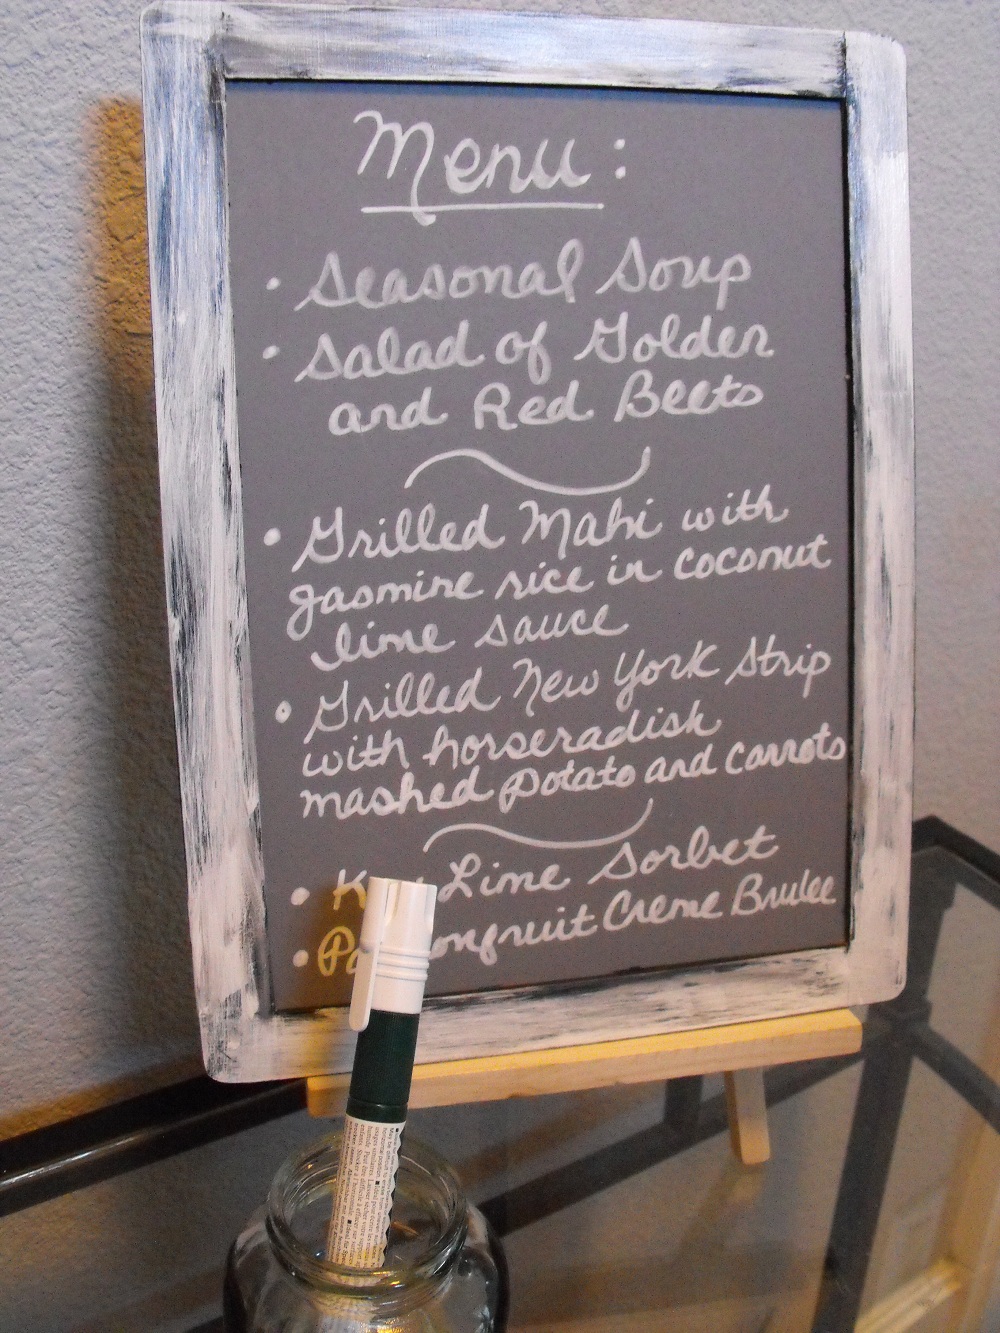 Menu:
• Seasonal Soup
• Salad of Golden
and Red Beets
• Grilled Mahi with
jasmine rice in coconut
lime sauce
• Grilled New York Strip
with horseradish
mashed potato and carrots
• Lime Sorbet
• Creme Brulee